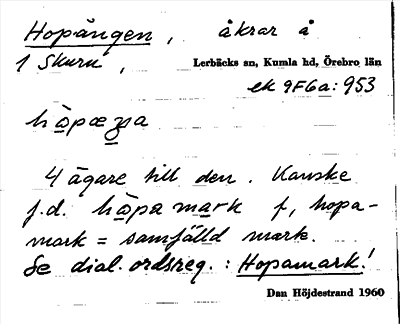 Hopängen, åkrar å
1 Skuru,
Lerbäcks sn, Kumla hd, Örebro län
ek 9F6a: 953
hopæŋa
4 ägare till den. Kanske
f.d. hopamark f, hopa-
mark = samfälld mark.
Se dial. ordsreg.: Hopamark!
Dan Höjdestrand 1960